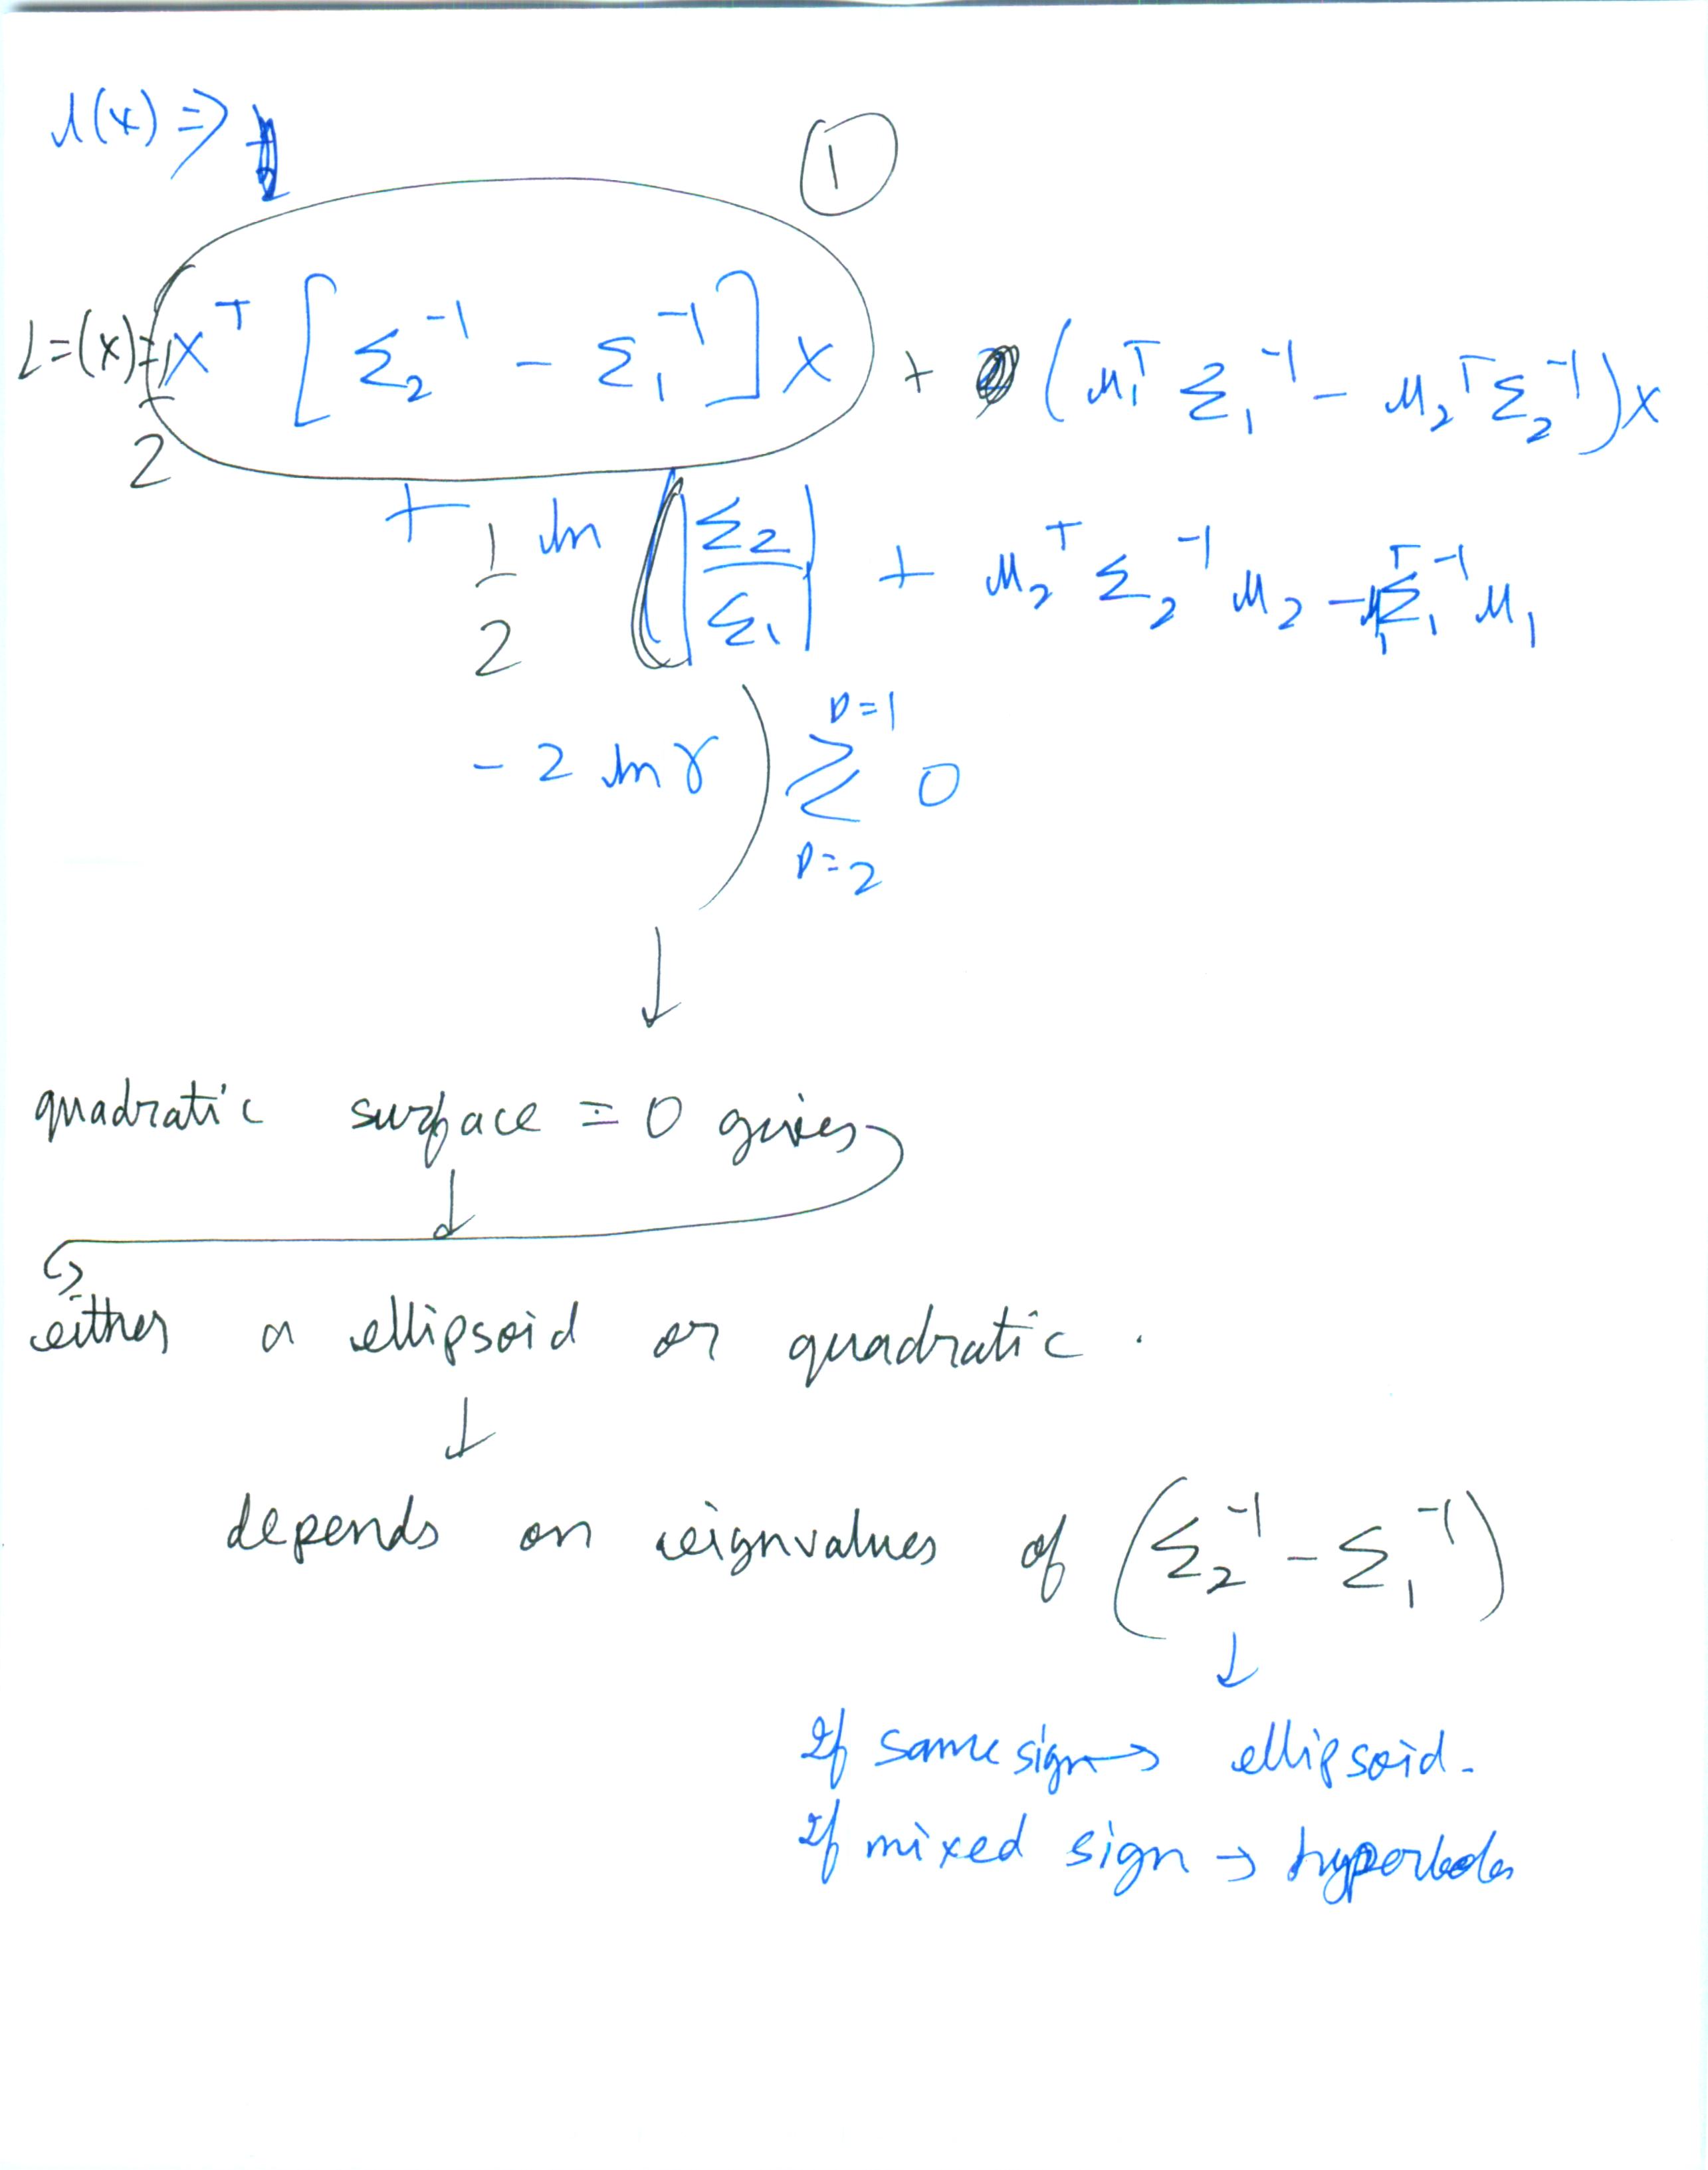 Λ(x) ⇒
①
L=(x)= 1/2 x^T [Σ₂^-1 - Σ₁^-1] x + (μ₁^T Σ₁^-1 - μ₂^T Σ₂^-1) x
+ 1/2 ln (|Σ₂/Σ₁| + μ₂^T Σ₂^-1 μ₂ - μ₁^T Σ₁^-1 μ₁
- 2 ln γ) ≷ 0
D=1
D=2
↓
quadratic surface = 0 gives
↓
either a ellipsoid or quadratic .
↓
depends on eignvalues of (Σ₂^-1 - Σ₁^-1)
↓
If same sign → ellipsoid.
If mixed sign →